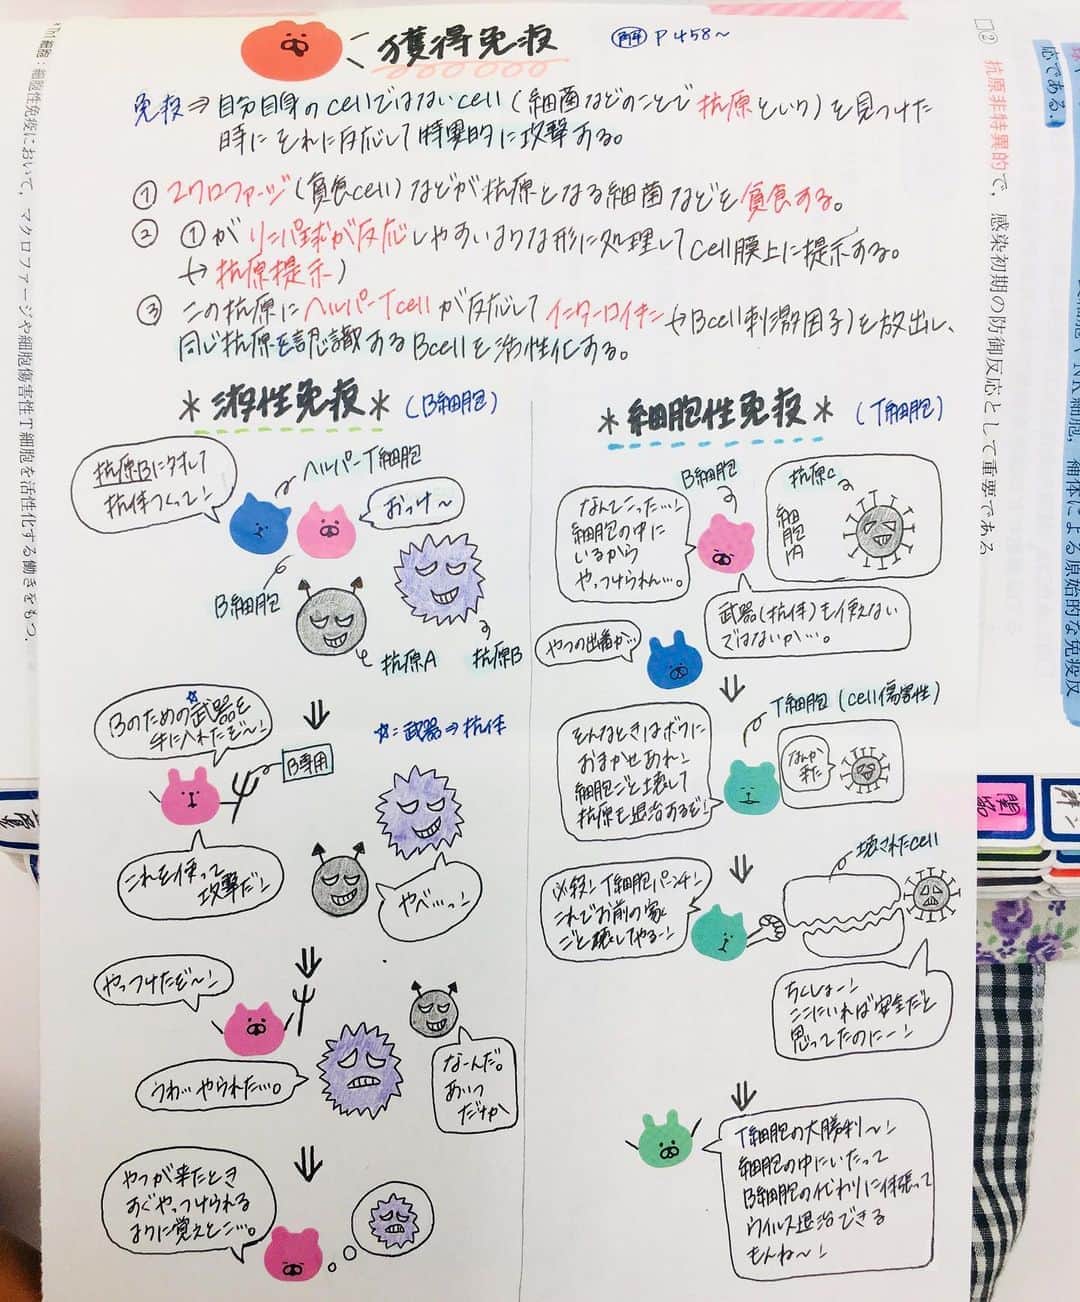 獲得免疫
P458~
免疫⇒自分自身のcellではないcell(細菌などのことで抗原という)を見つけた
時にそれに反応して特異的に攻撃する。
① マクロファージ(貪食cell)などが抗原となる細菌などを貪食する。
② ①がリンパ球が反応しやすいような形に処理してcell膜上に提示する。
(→抗原提示)
③ この抗原にヘルパーTcellが反応してインターロイキン(やBcell刺激因子)を放出し、
同じ抗原を認識するBcellを活性化する。
*液性免疫* (B細胞)
抗原Bに対して
抗体つくって!
ヘルパーT細胞
おっけ〜
B細胞
抗原A
抗原B
Bのための武器を
手に入れたぞ〜!
☆=武器⇒抗体
B専用
これを使って
攻撃だ!
やべ…っ!
やっつけたぞ〜!
うわ…やられた…。
なーんだ。
あいつ
だけか
やつが来たとき
すぐやっつけられる
ように覚えとこ…。
*細胞性免疫* (T細胞)
B細胞
抗原C
細胞内
なんてこった…!
細胞の中に
いるから
やっつけられん…。
武器(抗体)も使えない
ではないか…。
やつの出番か…
T細胞(cell傷害性)
そんなときはボクに
おまかせあれ!
細胞ごと壊して
抗原も退治するぞ!
なんか
来た
壊されたcell
必殺!T細胞パンチ!
これでお前の家
ごと壊してやる〜!
ちくしょー!
ここにいれば安全だと
思ってたのにー!
T細胞の大勝利〜!
細胞の中にいたって
B細胞の代わりに頑張って
ウイルス退治できる
もんね〜!
②
抗原非特異的で、感染初期の防御反応として重要である
応である.
細胞やNK細胞,補体による原始的な免疫反
細胞:細胞性免疫において,マクロファージや細胞傷害性T細胞を活性化する働きをもつ.